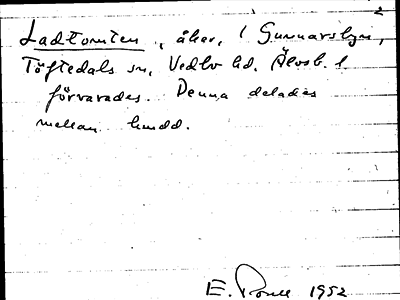 2
Ladtomten, åker, i Gunnarsbyn,
Töftedals sn, Vedbo hd. Älvsb. l
förvarades. Denna delades
mellan
E. 1952